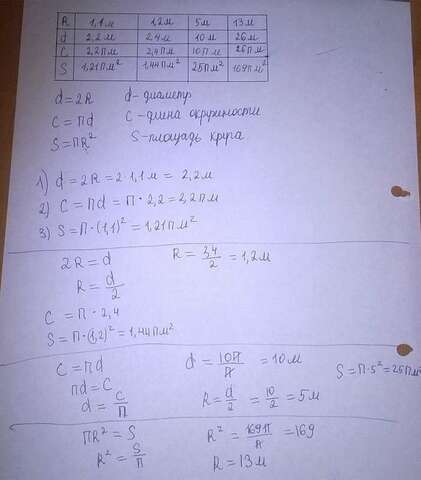 R 1,1м 1,2м 5м 13м
d 2,2м 2,4м 10м 26м
C 2,2пм 2,4пм 10пм 26пм
S 1,21пм² 1,44пм² 25пм² 169пм²
d=2R d-диаметр
C=пd C-длина окружности
S=пR² S-площадь круга
1) d=2R=2·1,1м= 2,2м
2) C=пd=п·2,2=2,2пм
3) S=п·(1,1)²=1,21пм²
2R=d R=2,4/2=1,2м
R=d/2
C=п·2,4
S=п·(1,2)²=1,44пм²
C=пd d=10п/п=10м S=п·5²=25пм²
пd=C
d=C/п R=d/2=10/2=5м
пR²=S R²=169п/п=169
R²=S/п R=13м